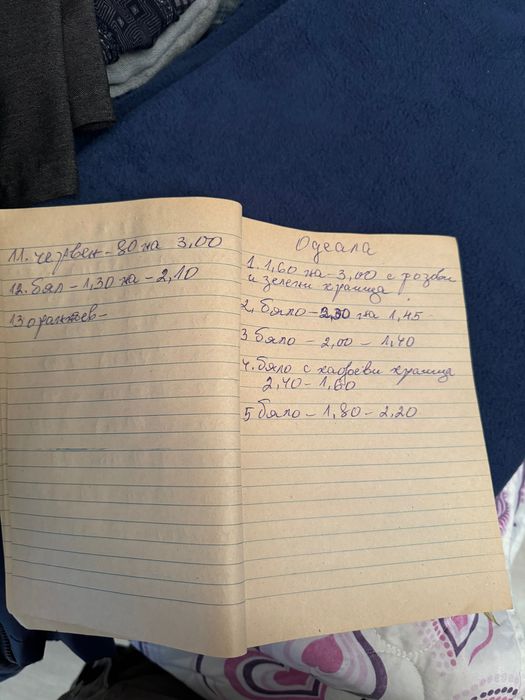 11. червен - 80 на 3,00
12. бял - 1,30 на - 2,10
13 оранжев -
Одеала
1. 1,60 на - 3,00 с розови
и зелени краища
2. бяло - 2,30 на 1,45
3 бяло - 2,00 - 1,40
4. бяло с кафеви краища
2,40 - 1,60
5 бяло - 1,80 - 2,20